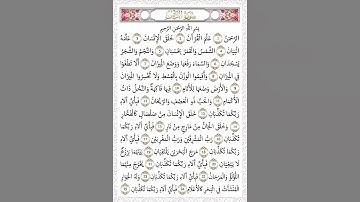 سُورَةُ الرَّحْمَٰن
بِسْمِ اللَّهِ الرَّحْمَٰنِ الرَّحِيمِ
الرَّحْمَٰنُ ١ عَلَّمَ الْقُرْآنَ ٢ خَلَقَ الْإِنْسَانَ ٣ عَلَّمَهُ
الْبَيَانَ ٤ الشَّمْسُ وَالْقَمَرُ بِحُسْبَانٍ ٥ وَالنَّجْمُ وَالشَّجَرُ
يَسْجُدَانِ ٦ وَالسَّمَاءَ رَفَعَهَا وَوَضَعَ الْمِيزَانَ ٧ أَلَّا تَطْغَوْا
فِي الْمِيزَانِ ٨ وَأَقِيمُوا الْوَزْنَ بِالْقِسْطِ وَلَا تُخْسِرُوا الْمِيزَانَ
٩ وَالْأَرْضَ وَضَعَهَا لِلْأَنَامِ ١٠ فِيهَا فَاكِهَةٌ وَالنَّخْلُ ذَاتُ
الْأَكْمَامِ ١١ وَالْحَبُّ ذُو الْعَصْفِ وَالرَّيْحَانُ ١٢ فَبِأَيِّ آلَاءِ
رَبِّكُمَا تُكَذِّبَانِ ١٣ خَلَقَ الْإِنْسَانَ مِنْ صَلْصَالٍ كَالْفَخَّارِ
١٤ وَخَلَقَ الْجَانَّ مِنْ مَارِجٍ مِنْ نَارٍ ١٥ فَبِأَيِّ آلَاءِ رَبِّكُمَا
تُكَذِّبَانِ ١٦ رَبُّ الْمَشْرِقَيْنِ وَرَبُّ الْمَغْرِبَيْنِ ١٧ فَبِأَيِّ آلَاءِ
رَبِّكُمَا تُكَذِّبَانِ ١٨ مَرَجَ الْبَحْرَيْنِ يَلْتَقِيَانِ ١٩ بَيْنَهُمَا بَرْزَخٌ
لَا يَبْغِيَانِ ٢٠ فَبِأَيِّ آلَاءِ رَبِّكُمَا تُكَذِّبَانِ ٢١ يَخْرُجُ مِنْهُمَا
اللُّؤْلُؤُ وَالْمَرْجَانُ ٢٢ فَبِأَيِّ آلَاءِ رَبِّكُمَا تُكَذِّبَانِ ٢٣ وَلَهُ الْجَوَارِ
الْمُنْشَآتُ فِي الْبَحْرِ كَالْأَعْلَامِ ٢٤ فَبِأَيِّ آلَاءِ رَبِّكُمَا تُكَذِّبَانِ ٢٥